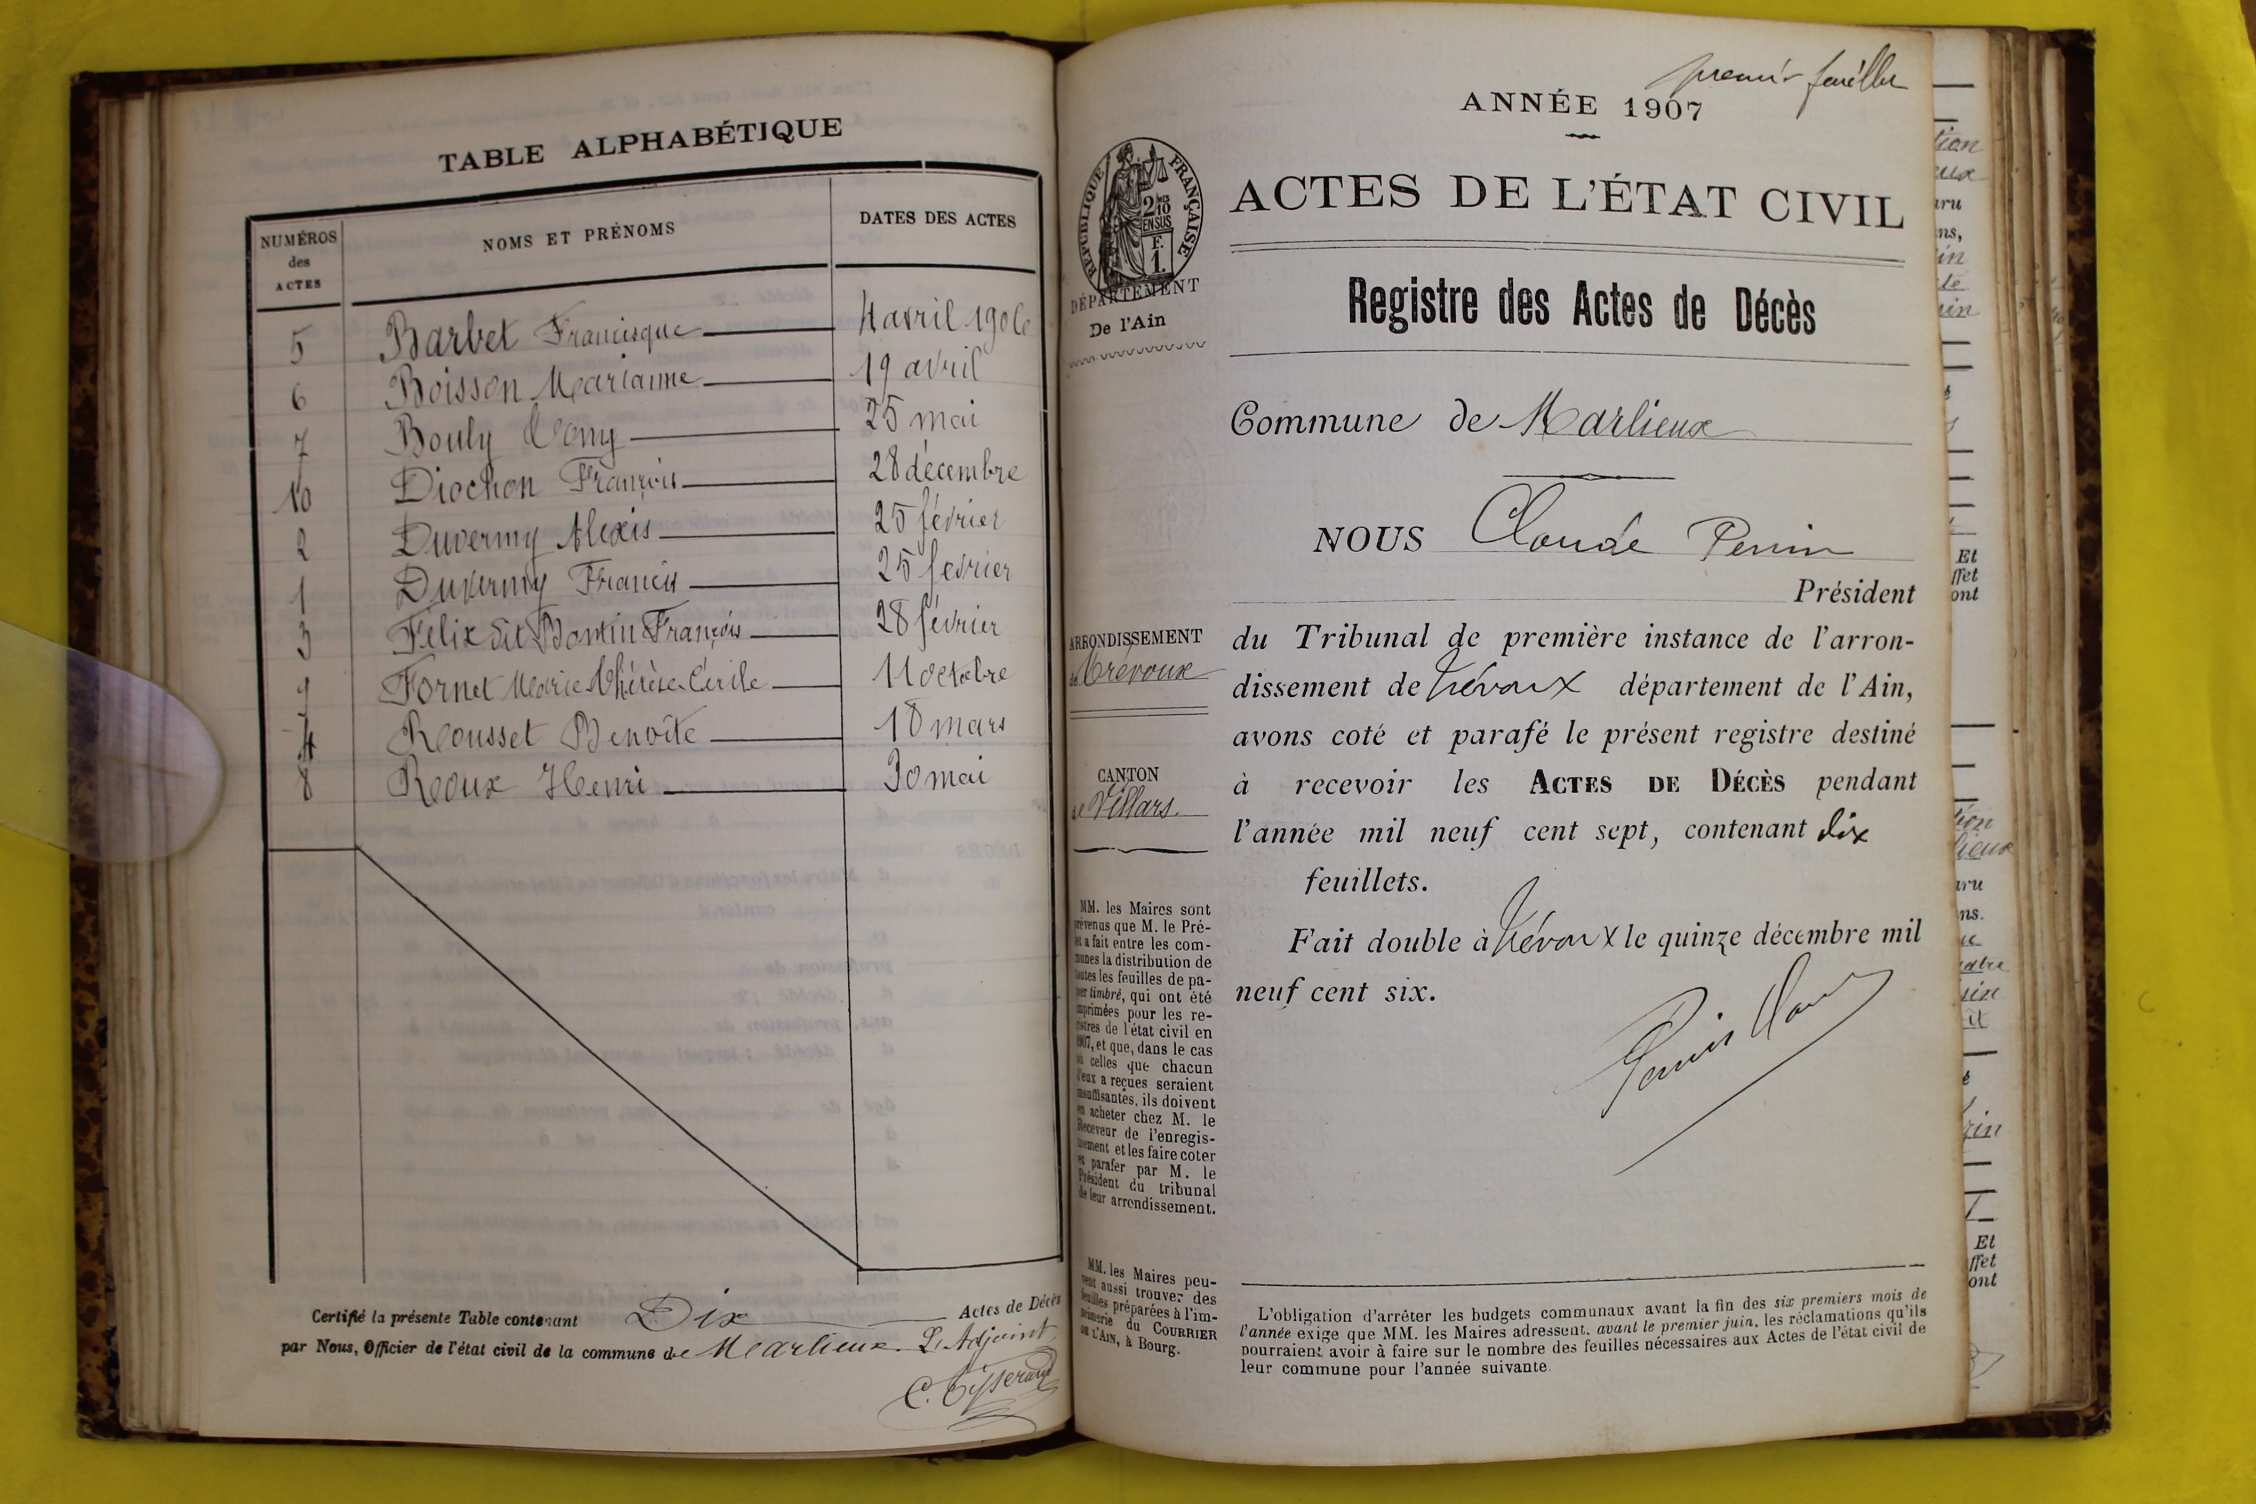 TABLE ALPHABÉTIQUE
NUMÉROS des ACTES
NOMS ET PRÉNOMS
DATES DES ACTES
5 Barbet Francisque 4 avril 1906
6 Boisson Marianne 19 avril
7 Bouly Tony 25 mai
10 Diochon François 28 décembre
2 Duverny Alexis 25 février
1 Duverny Francis 25 février
3 Félix dit Bontin François 28 février
9 Fornet Marie Thérèse Cécile 11 octobre
4 Rousset Benoîte 18 mars
8 Roux Henri 30 mai
Certifié la présente Table contenant Dix Actes de Décès
par Nous, Officier de l'état civil de la commune de Marlieux. L'Adjoint
C. Tisserand
premier feuillet
ANNÉE 1907
RÉPUBLIQUE FRANÇAISE
2 DES 10 EN SUS
F. 1.
DÉPARTEMENT
De l'Ain
ACTES DE L'ÉTAT CIVIL
Registre des Actes de Décès
Commune de Marlieux
NOUS Claude Perrin
Président
ARRONDISSEMENT
de Trévoux
du Tribunal de première instance de l'arron-
dissement de Trévoux département de l'Ain,
avons coté et parafé le présent registre destiné
à recevoir les ACTES DE DÉCÈS pendant
l'année mil neuf cent sept, contenant dix
feuillets.
CANTON
de Villars.
Fait double à Trévoux le quinze décembre mil
neuf cent six.
Perrin Claude
MM. les Maires sont
prévenus que M. le Pré-
fet a fait entre les com-
munes la distribution de
toutes les feuilles de pa-
pier timbré, qui ont été
imprimées pour les re-
gistres de l'état civil en
1907, et que, dans le cas
où celles que chacun
d'eux a reçues seraient
insuffisantes, ils doivent
en acheter chez M. le
Receveur de l'enregis-
trement et les faire coter
et parafer par M. le
Président du tribunal
de leur arrondissement.
MM. les Maires peu-
vent aussi trouver des
feuilles préparées à l'im-
primerie du COURRIER
DE L'AIN, à Bourg.
L'obligation d'arrêter les budgets communaux avant la fin des six premiers mois de
l'année exige que MM. les Maires adressent, avant le premier juin, les réclamations qu'ils
pourraient avoir à faire sur le nombre des feuilles nécessaires aux Actes de l'état civil de
leur commune pour l'année suivante.